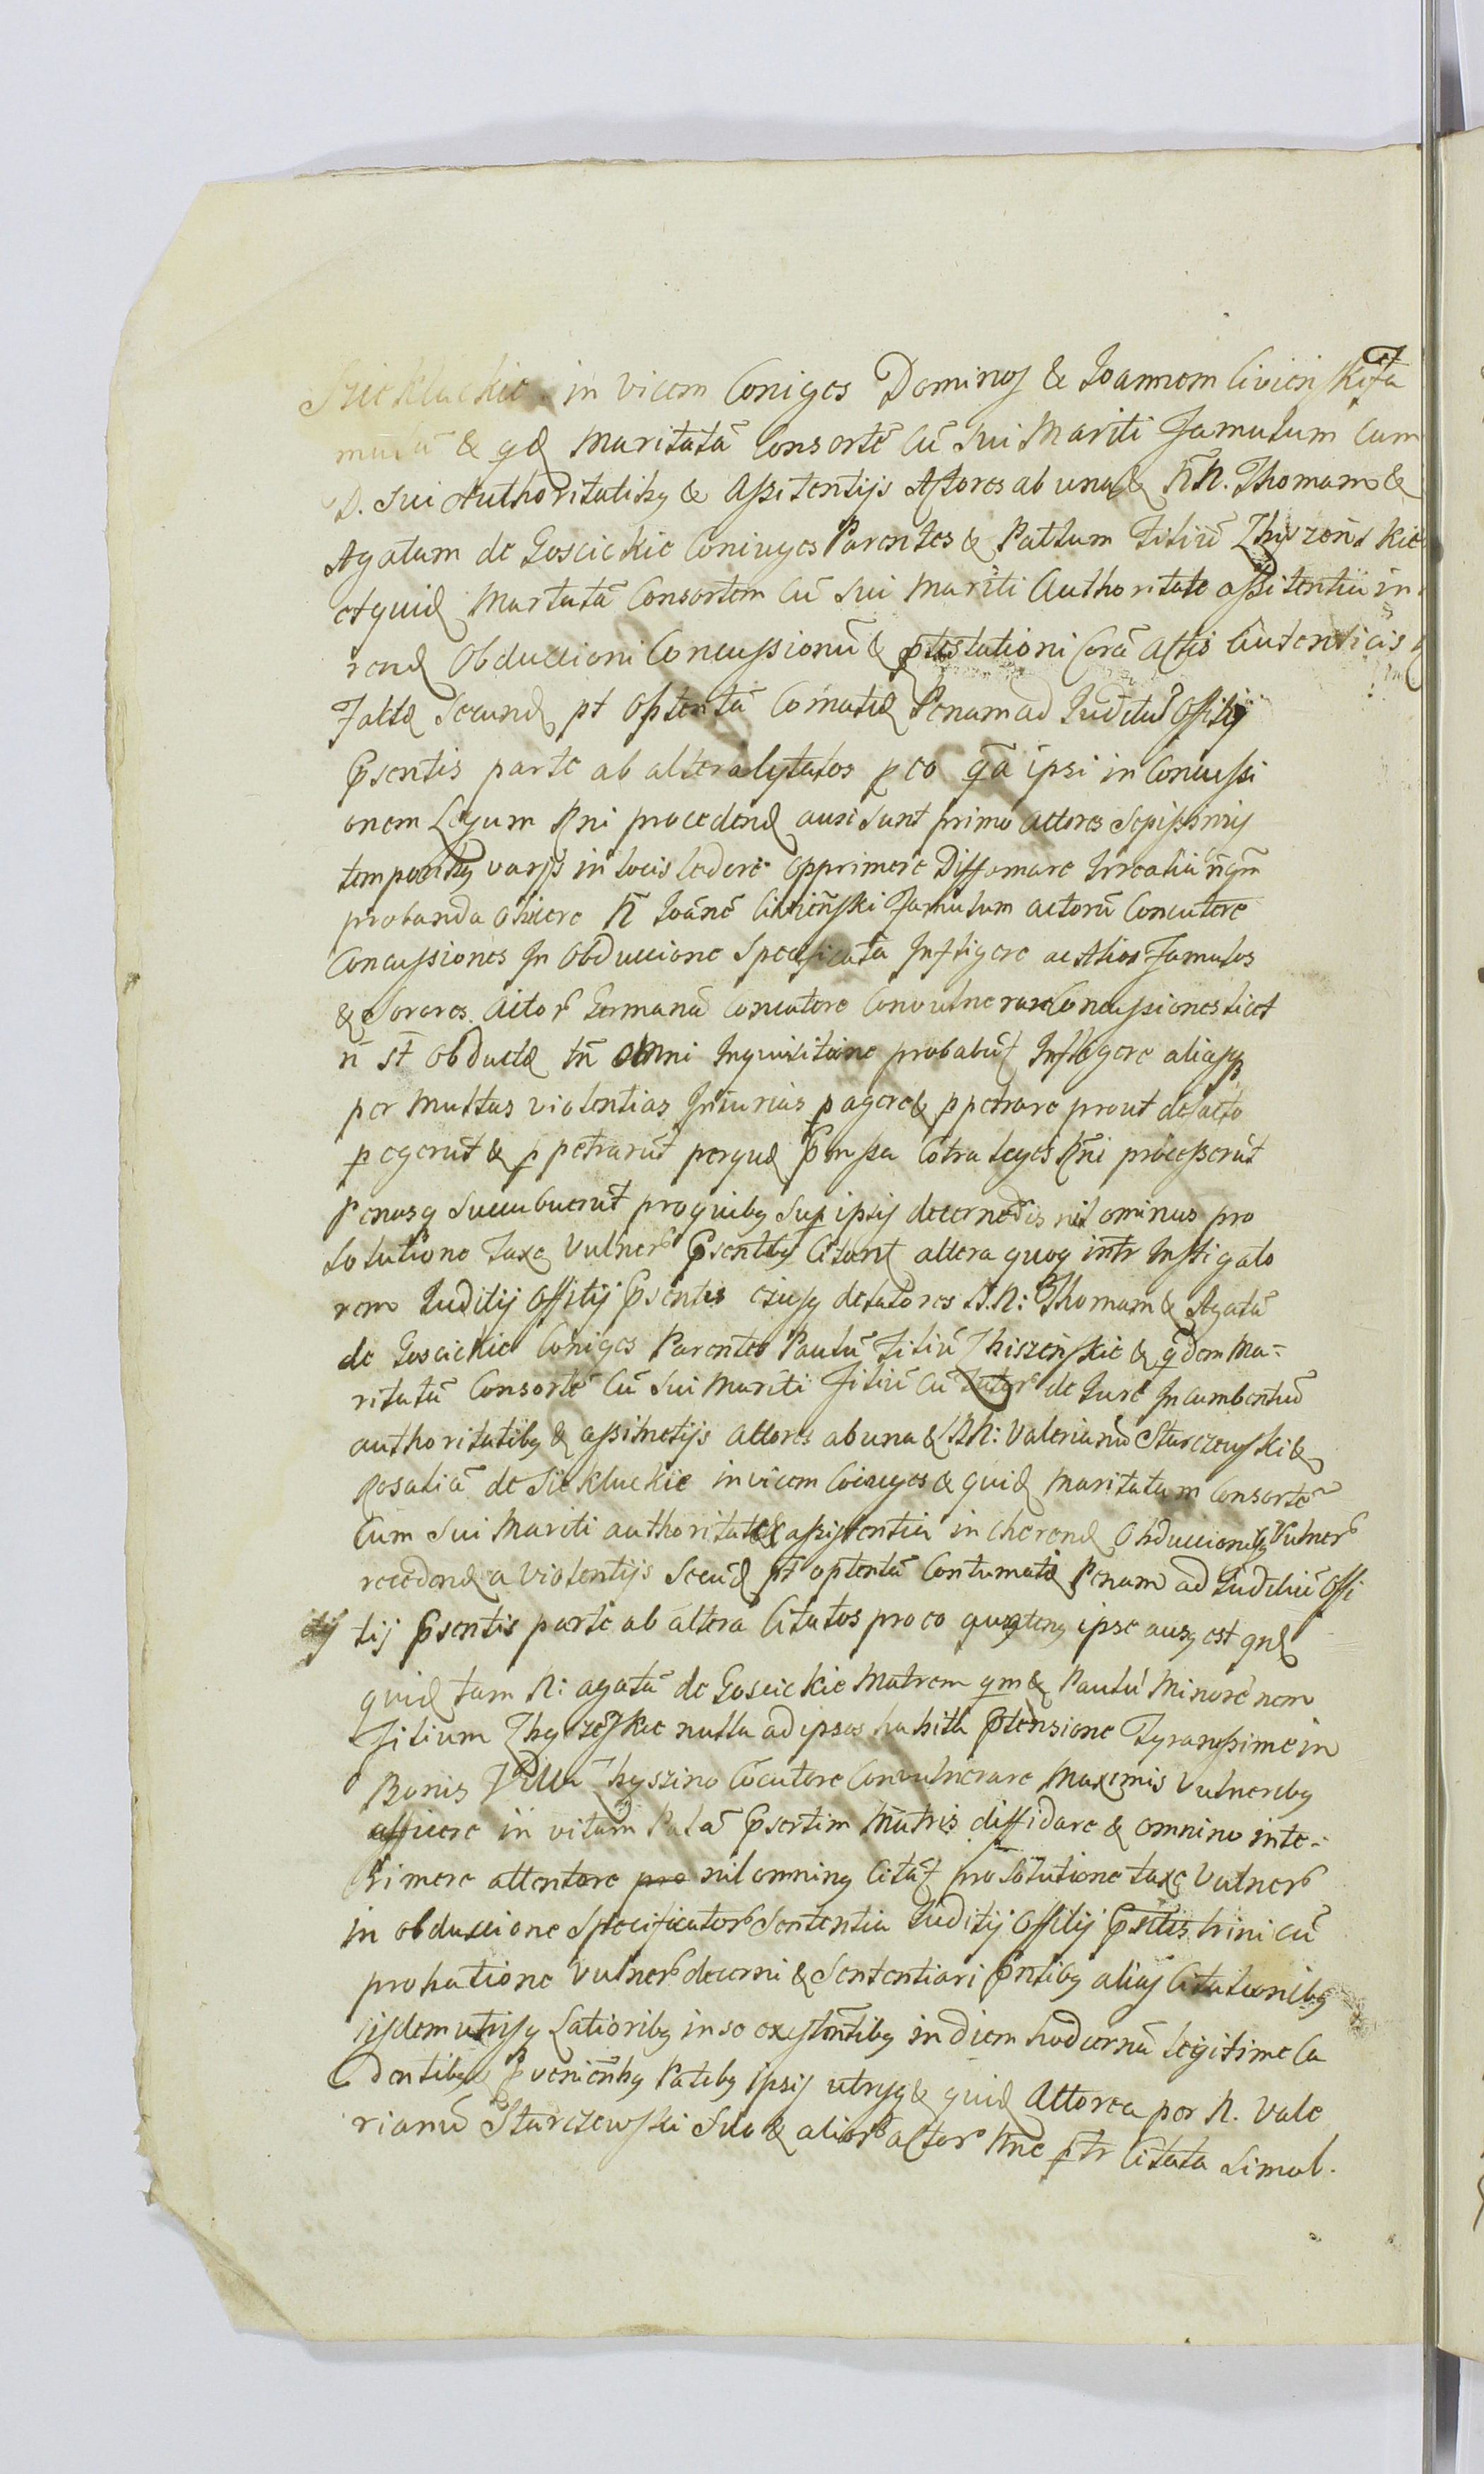 Siekluckie in vicem Coniges Dominos & Joannem Civienski fa
mulū & qd maritatā Consortē Cū sui Mariti Famulum Cum
D. sui Authoritatibq & Assitentijs Actores ab una & N.N. Thomam &
Agatam de Goscickie Coniuges Parentes & Paulum Filiū Zhyszenskie
et quid Martatā Consortem Cū sui Mariti Authoritate assitentia in
rend Obduccioni Concussionū & ptestationi Corā Actis Autenticis
Factæ Secund pt Optentā Cōmatiæ Penam ad Juditiū Offitij
Psentis parte ab altera Cytatos p eo qā ipsi in Concussi
onem Legum Rni procedend ausi sunt primo actores Sepissimis
temporibq varijs in locis ledere opprimere Diffamare Irrealia nqm
probanda obicere N Joānē Civieński Famulum actorū Concutere
Concussiones In Obduccione Specificata Infligere ac Alios Famulos
& Sorores Actor Germanā Concutere Convulnerare Concussiones licet
n st obductæ tn omni Inquisitione probabūt Infligere aliasq
per multas violentias Iniurias pagere & ppetrare prout defacto
pegerūt & ppetrarūt perque Pmissa Cōtra leges Rni processerūt
Penasq Succubuerūt pro quibq sup ipsis decernedis nil ominus pro
Solutione Taxæ Vulner Psentibq Citant altera quoq intr Instigato
rem Juditij Offitij Psentis eiusq delatores N.N: Thomam & Agatā
de Goscickie Coniges Parentes Paulū Filiū Zhiszenskie & qdem Ma-
ritatā Consortē Cū sui Mariti Filiū cū Tutor de Iure Incumbentiū
authoritatibq & assitnetijs actores ab una & NN: Valerianū Starczewski &
Rosaliā de Siekluckie invicem Coiuges & quid maritatam Consortē
Cum sui Mariti authoritate & assistentia in cherend Obduccionibq Vulner
recedend a violentijs Secūd pt optentā Contumatiæ Penam ad Juditiū Offi
tij Psentis parte ab altera Citatos pro eo quatenq ipse ausq est qnd
quid tam N: agatā de Goscickie Matrem qm & Paulū Minorēnem
Filium Zhyszeskie nulla ad ipsos habita Ptensione Tyranssime in
Bonis Villā Zhyszino Cōcutere Convulnerare Maximis Vulneribq
afficere in vitam Pala Psertim Mutris diffidare & omnino inte-
rimere attentare pro nil omninq Citāt pro Solutione taxæ Vulner
in obduccione Specificator Sententia Juditij Offitij Psntis trini cū
probatione Vulner decerni & Sententiari Pntibq alias Citationibq
ijsdem utrisq Latioribq in se existentibq in diem hodiernā legitime Ca
dentibq & Pvenientibq Patibq ipsis utrisq & quid Actorea per N. Vale
rianū Starczewski Suo & alior actor Nne ptr Citata Simul.